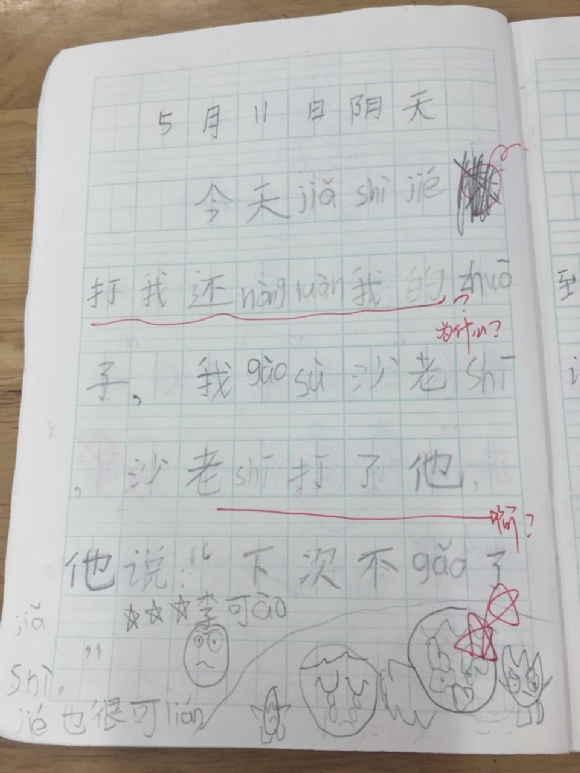 5月11日阴天
今天jiǎ shì jié
打我还nòng luàn我的zhuō
？
为什么？
子，我gào sù沙老shī
，沙老shī打了他，
啊？
他说：“下次不gǎo了
☆☆☆李可ào
”
jiǎ
shì。
jié也很可lián